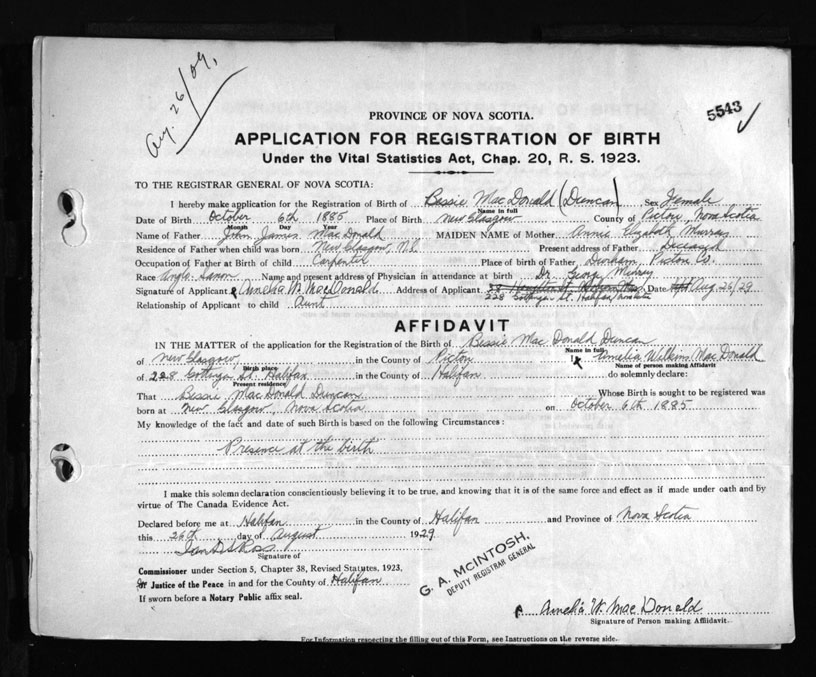 Aug. 26/29.
5543 ✓
PROVINCE OF NOVA SCOTIA.
APPLICATION FOR REGISTRATION OF BIRTH
Under the Vital Statistics Act, Chap. 20, R. S. 1923.
TO THE REGISTRAR GENERAL OF NOVA SCOTIA:
I hereby make application for the Registration of Birth of Bessie MacDonald (Duncan) Sex Female
Name in full
Date of Birth October 6th 1885 Place of Birth New Glasgow County of Pictou, Nova Scotia
Month Day Year
Name of Father John James MacDonald MAIDEN NAME of Mother Annie Elizabeth Murray
Residence of Father when child was born New Glasgow, N.S. Present address of Father Deceased
Occupation of Father at Birth of child Carpenter Place of birth of Father Durham, Pictou Co.
Race Anglo-Saxon Name and present address of Physician in attendance at birth Dr. George Murray
Signature of Applicant Amelia W. MacDonald Address of Applicant Date Aug. 26/29
228 Gottingen St. Halifax
Relationship of Applicant to child Aunt
AFFIDAVIT
IN THE MATTER of the application for the Registration of the Birth of Bessie MacDonald Duncan
Name in full
of New Glasgow in the County of Pictou I, Amelia Wilkins MacDonald
Birth place Name of person making Affidavit
of 228 Gottingen St. Halifax in the County of Halifax do solemnly declare:
Present residence
That Bessie MacDonald Duncan Whose Birth is sought to be registered was
born at New Glasgow, Nova Scotia on October 6th 1885
My knowledge of the fact and date of such Birth is based on the following Circumstances:
Presence at the birth
I make this solemn declaration conscientiously believing it to be true, and knowing that it is of the same force and effect as if made under oath and by
virtue of The Canada Evidence Act.
Declared before me at Halifax in the County of Halifax and Province of Nova Scotia
this 26th day of August 1929
Signature of
G. A. McINTOSH,
DEPUTY REGISTRAR GENERAL
Commissioner under Section 5, Chapter 38, Revised Statutes, 1923,
or Justice of the Peace in and for the County of Halifax
If sworn before a Notary Public affix seal.
Amelia W. MacDonald
Signature of Person making Affidavit.
For Information respecting the filling out of this Form, see Instructions on the reverse side.